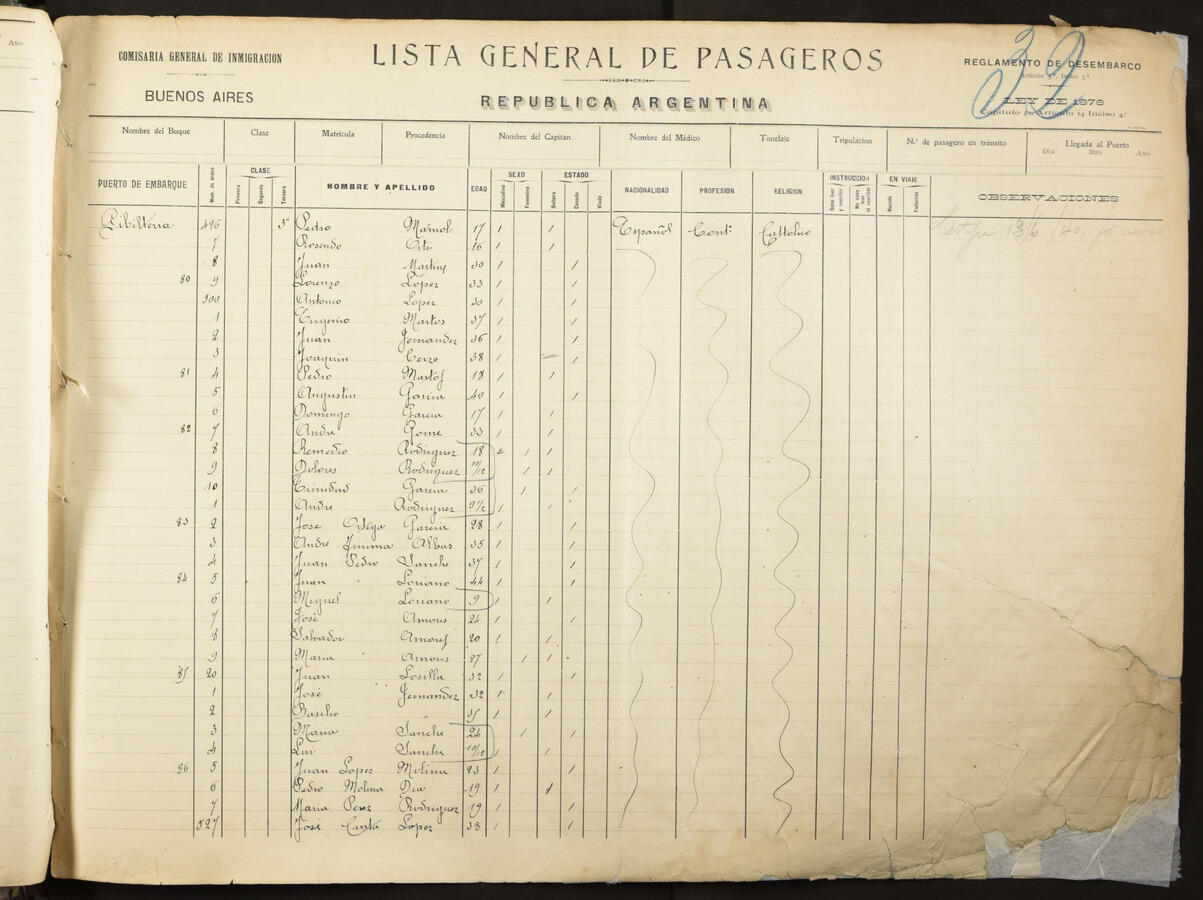 Año
COMISARIA GENERAL DE INMIGRACION
BUENOS AIRES
LISTA GENERAL DE PASAGEROS
REPUBLICA ARGENTINA
32
REGLAMENTO DE DESEMBARCO
Articulo 9º, Inciso 3º
LEY DE 1876
Articulo 14 Inciso 4º
Nombre del Buque Clase Matricula Procedencia Nombre del Capitan Nombre del Médico Tonelaje Tripulacion N.º de pasagero en tránsito Llegada al Puerto
DIA MES AÑO
PUERTO DE EMBARQUE Num. de órden CLASE Primera Segunda Tercera NOMBRE Y APELLIDO EDAD SEXO Masculino Femenino ESTADO Soltero Casado Viudo NACIONALIDAD PROFESION RELIGION INSTRUCCION Sabe leer y escribir No sabe leer ni escribir EN VIAJE Nacido Fallecido OBSERVACIONES
496 3ª Pedro 17 / / Español Cattolico
7 Rosendo 16 / /
8 Juan Martins 30 / /
80 9 Lorenzo Lopez 33 / /
500 Antonio Lopez 30 / /
1 Eugenio Martos 37 / /
2 Juan Fernandez 36 / /
3 Joaquin 38 / /
81 4 Pedro Martos 18 / /
5 Augustin Garcia 40 / /
6 Domingo Garcia 17 / /
82 7 Andre Gome 33 / /
8 Remedio Rodriguez 18 / /
9 Dolores Rodriguez 10/12 / /
10 Trinidad Garcia 36 / /
1 Andre Rodriguez 9 1/2 / /
83 2 Jose Ortega Garcia 28 / /
3 Andre 35 / /
4 Juan Pedro Sanche 37 / /
84 5 Juan 44 / /
6 Miguel 9 / /
7 José Amores 24 / /
8 Salvador Amores 20 / /
9 Maria Amores 27 / /
85 20 Juan Losilla 32 / /
1 José Fernandez 32 / /
2 Basilio " 35 / /
3 Maria Sanche 24 / /
4 Lui Sanche 10/12 / /
86 5 Juan Lopez Molina 23 / /
6 Pedro Molina Dia 19 / /
7 Maria Perez Rodriguez 19 / /
527 José Lopez 38 / /